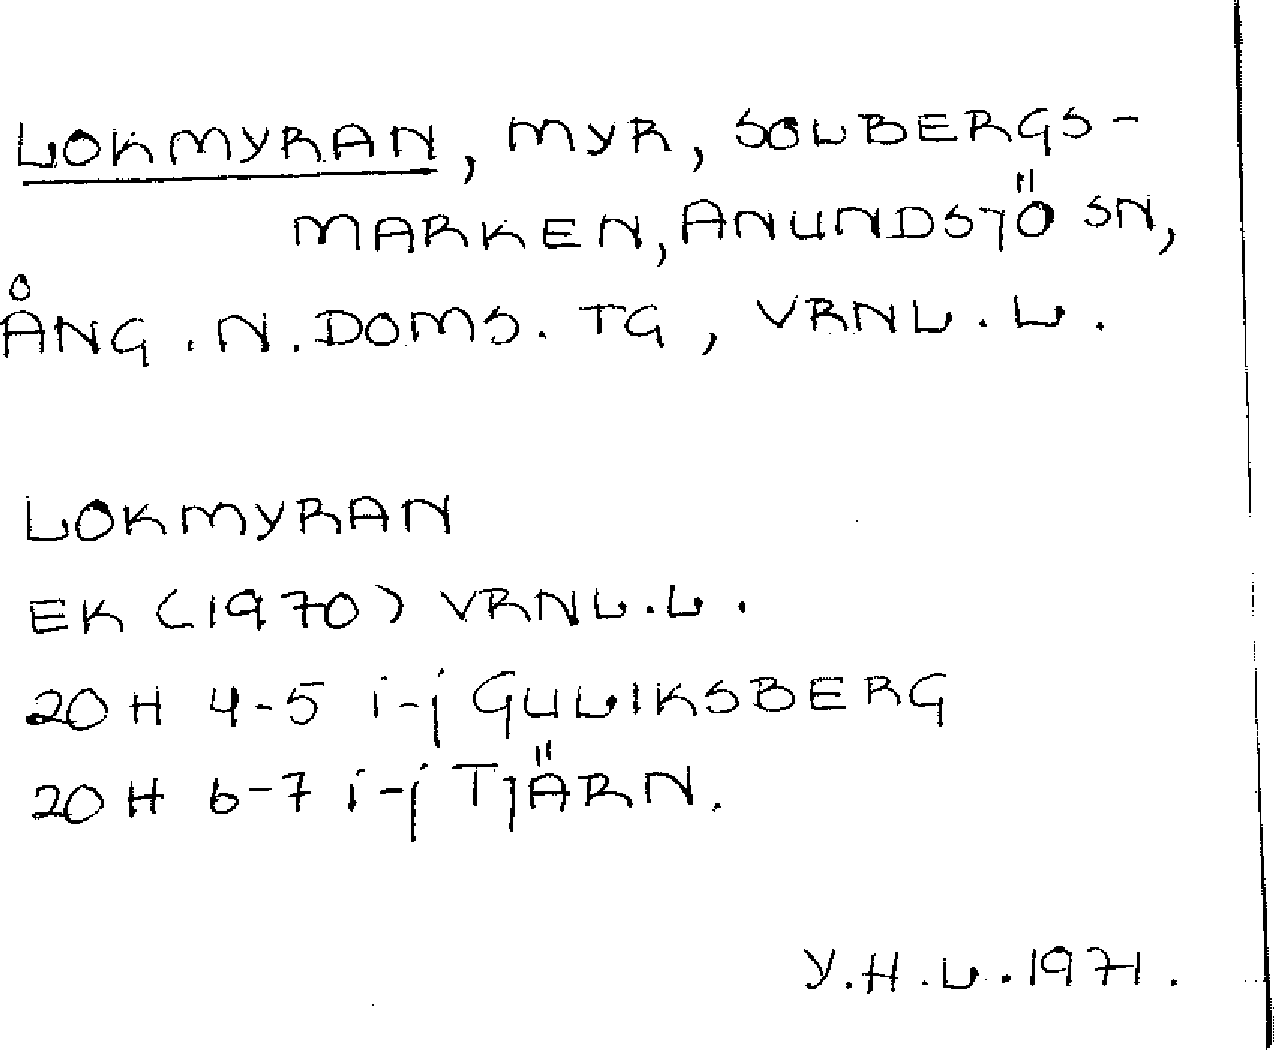 LOKMYRAN, MYR, SOLBERGS-
MARKEN, ANUNDSJÖ SN,
ÅNG. N. DOMS. TG, VRNL. L.
LOKMYRAN
EK (1970) VRNL. L.
20 H 4-5 i-j GULLIKSBERG
20 H 6-7 i-j TJÄRN.
Y. H. L. 1971.